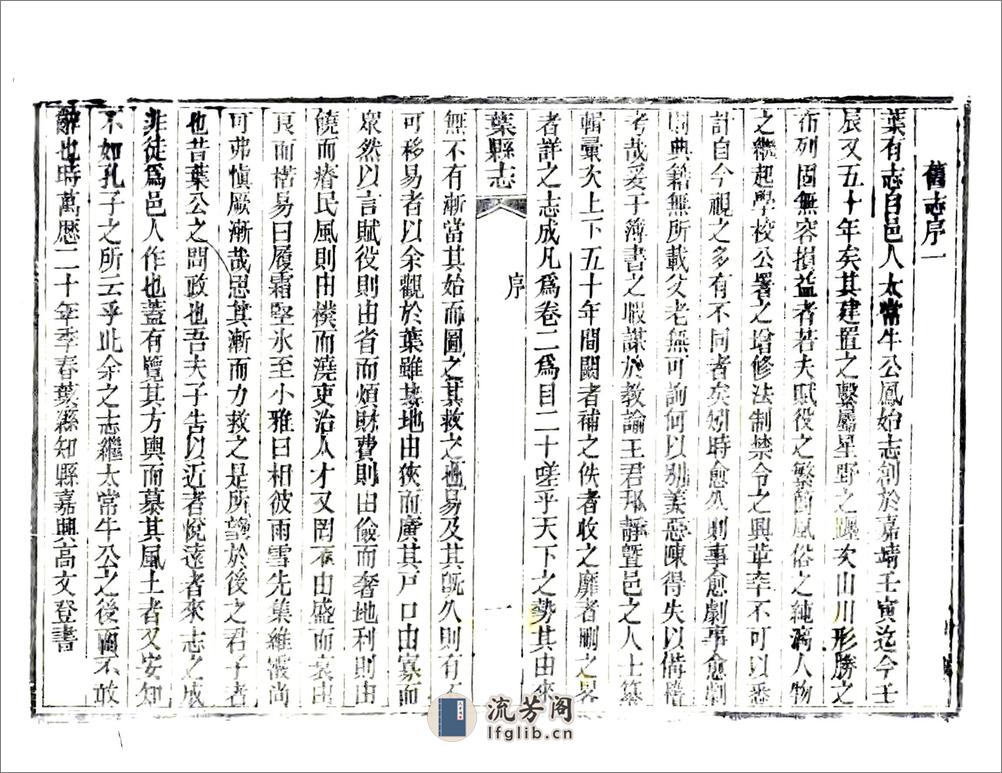 舊志序一
葉有志自邑人太常牛公鳳始志創於嘉靖壬寅迄今壬
辰又五十年矣其建置之繫屬星野之躔次山川形勝之
布列固無容損益者若夫賦役之繁簡風俗之純漓人物
之繼起學校公署之增修法制禁令之興革率不可以悉
計自今視之多有不同者矣矧時愈久則事愈劇事愈劇
則典籍無所載父老無可詢何以別美惡陳得失以備稽
考哉爰于簿書之暇謀於教諭王君邦靜暨邑之人士纂
輯彙次上下五十年間闕者補之佚者收之靡者刪之畧
者詳之志成凡為卷二為目二十嗟乎天下之勢其由來
葉縣志
序
一
無不有漸當其始而圖之其救之也易及其既久則有不
可移易者以余觀於葉雖其地由狹而廣其戸口由寡而
眾然以言賦役則由省而煩財費則由儉而奢地利則由
饒而瘠民風則由樸而澆吏治人才又罔不由盛而衰由
良而楛易曰履霜堅氷至小雅曰相彼雨雪先集維霰尚
可弗慎厥漸哉思其漸而力救之是所望於後之君子者
也昔葉公之問政也吾夫子告以近者悅遠者來志之成
非徒爲邑人作也蓋有覽其方輿而慕其風土者又安知
不如孔子之所云乎此余之志繼太常牛公之後而不敢
辭也時萬歷二十年季春葉縣知縣嘉興高文登書
流芳阁
lfglib.cn